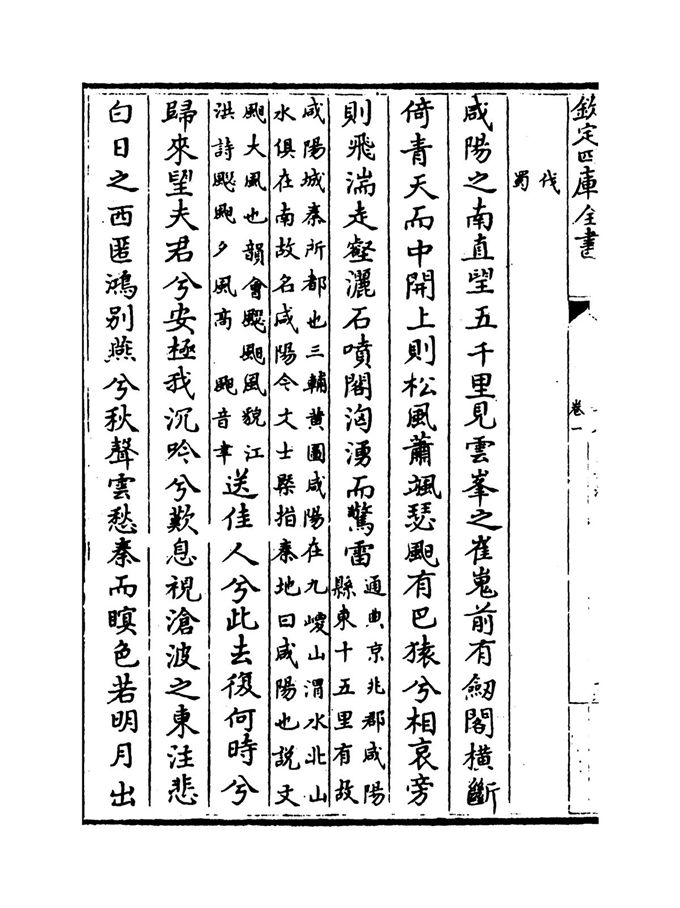 欽定四庫全書
卷一
伐
蜀
咸陽之南直望五千里見雲峯之崔嵬前有劔閣橫斷
倚青天而中開上則松風蕭颯瑟䫻有巴猿兮相哀旁
則飛湍走壑灑石噴閣洶湧而驚雷
通典京兆郡咸陽
縣東十五里有故
咸陽城秦所都也三輔黄圖咸陽在九嵕山渭水北山
水俱在南故名咸陽今文士槩指秦地曰咸陽也説文
䫻大風也韻會䫻風貌江
洪詩䫻夕風高 䫻音聿
送佳人兮此去復何時兮
歸來望夫君兮安極我沉吟兮歎息視滄波之東注悲
白日之西匿鴻别燕兮秋聲雲愁秦而暝色若明月出